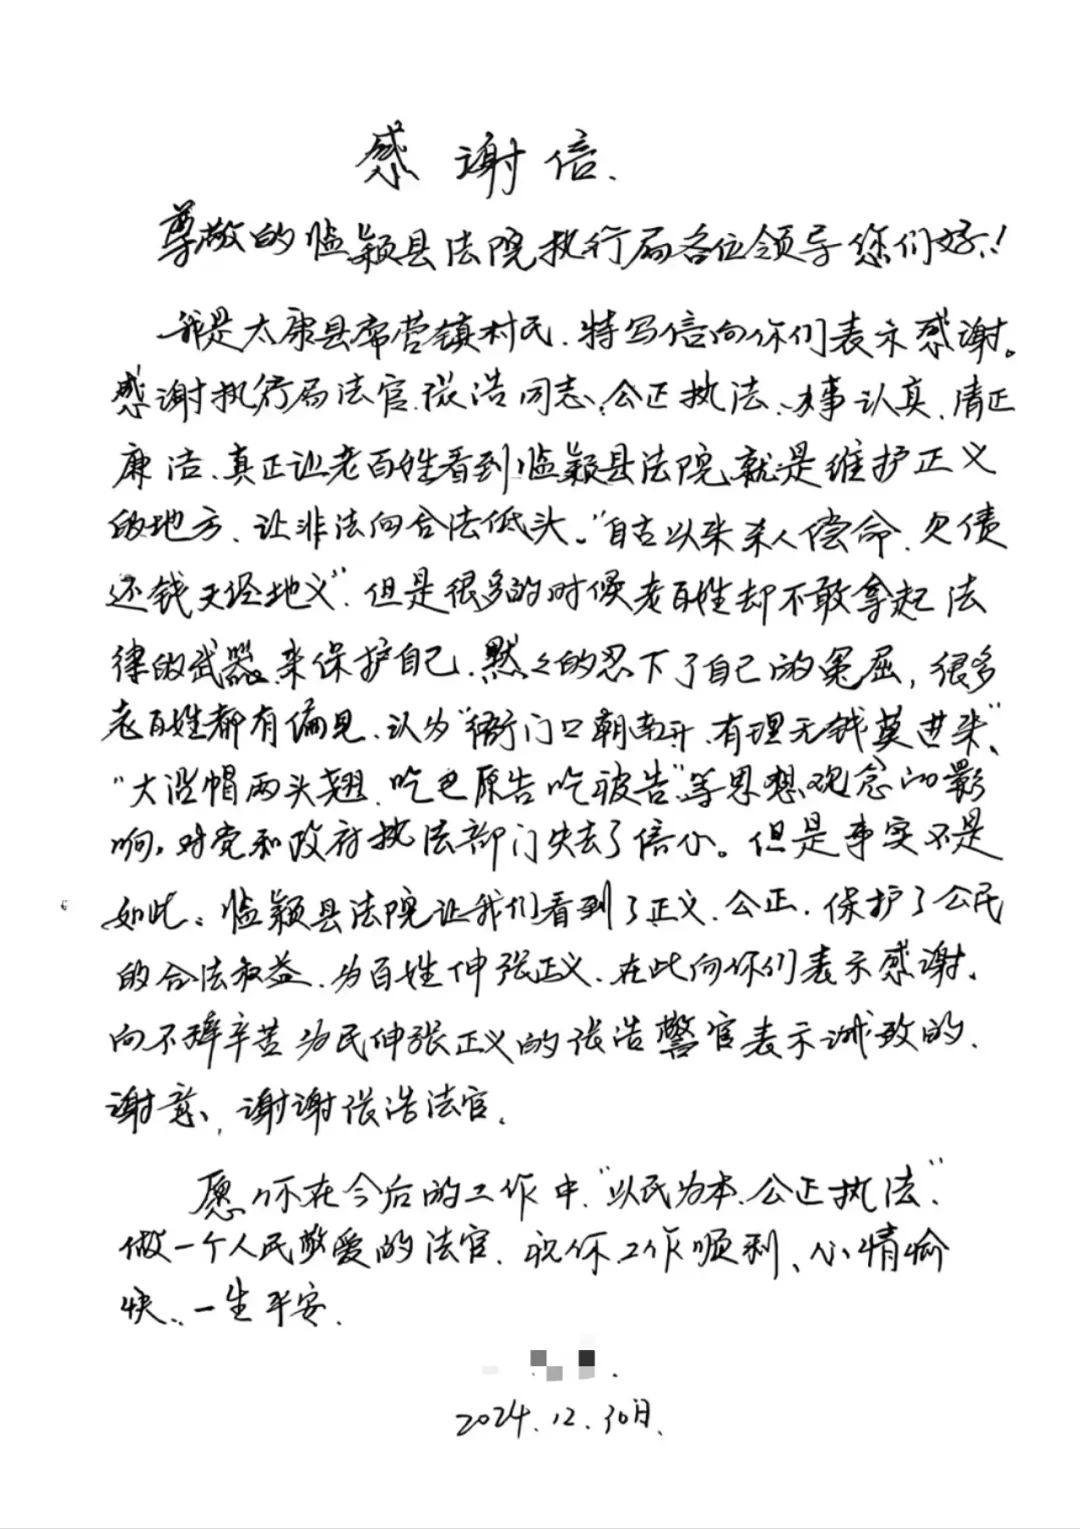 感谢信.
尊敬的临颍县法院执行局各位领导您们好!
我是太康县常营镇村民.特写信向你们表示感谢。
感谢执行局法官张浩同志、公正执法、办事认真、清正
廉洁、真正让老百姓看到临颍县法院就是维护正义
的地方、让非法向合法低头。"自古以来杀人偿命、欠债
还钱天经地义".但是很多的时候老百姓却不敢拿起法
律的武器来保护自己.默々的忍下了自己的冤屈,很多
老百姓都有偏见、认为"衙门口朝南开、有理无钱莫进来"、
"大沿帽两头翘、吃了原告吃被告"等思想观念的影
响,对党和政府执法部门失去了信心。但是事实不是
如此。临颍县法院让我们看到了正义、公正.保护了公民
的合法权益、为百姓伸张正义、在此向你们表示感谢、
向不辞辛苦为民伸张正义的张浩警官表示诚致的、
谢意、,谢谢张浩法官.
愿你在今后的工作中"以民为本、公正执法".
做一个人民敬爱的法官.祝你工作顺利、心情愉
快、.一生平安.
2024.12.30日.